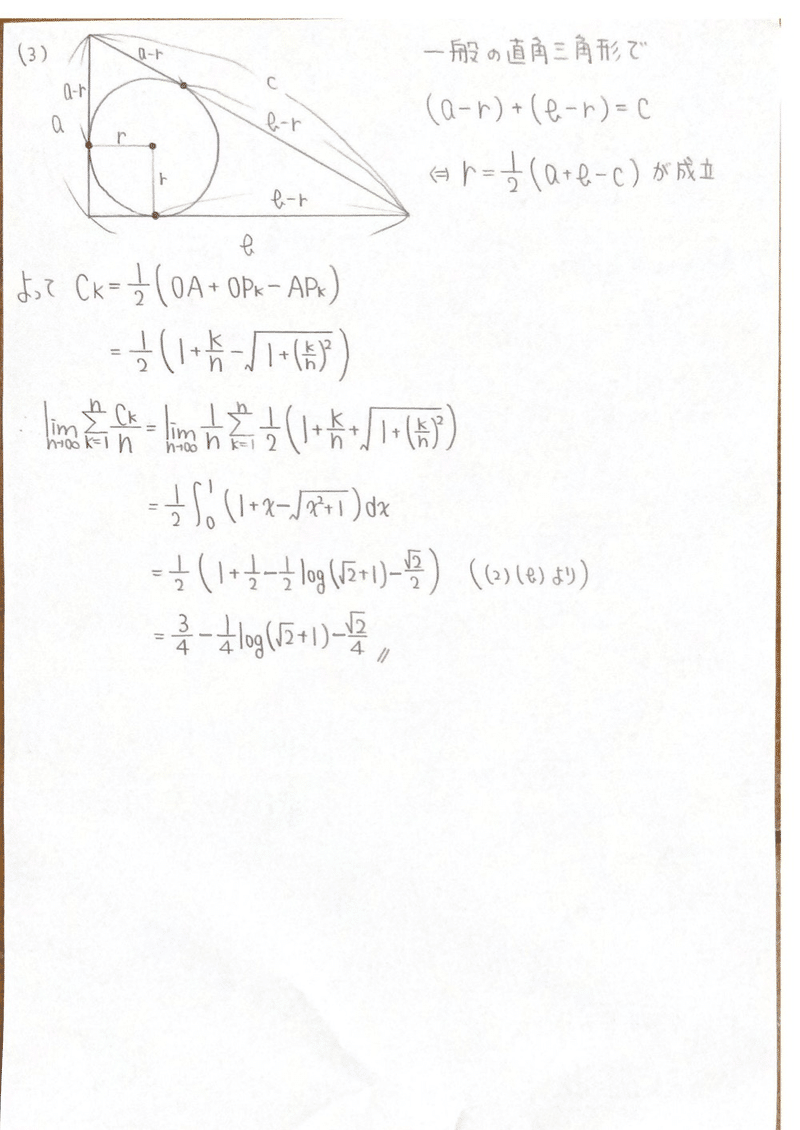 (3)
a-r
a-r
a
r
r
c
b-r
b-r
b
一般の直角三角形で
(a-r)+(b-r)=c
⇔ r=1/2(a+b-c) が成立
よって Ck=1/2(OA+OPk-APk)
=1/2(1+k/n-√(1+(k/n)²))
lim n→∞ Σ k=1 n Ck/n = lim n→∞ 1/n Σ k=1 n 1/2(1+k/n+√(1+(k/n)²))
=1/2∫₀¹(1+x-√(x²+1))dx
=1/2(1+1/2-1/2log(√2+1)-√2/2) ((2)(b)より)
=3/4-1/4log(√2+1)-√2/4 //